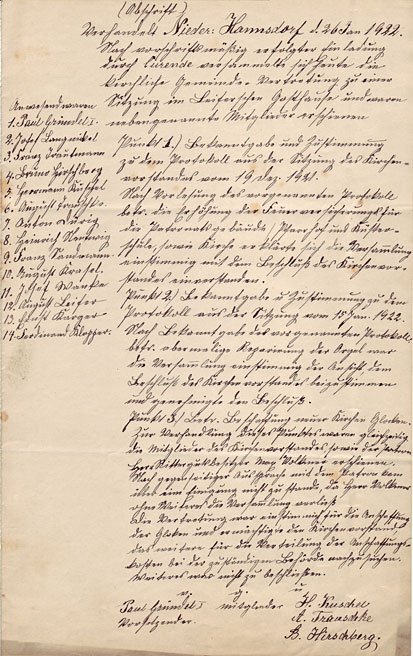 (Abschrift)
Verhandelt Nieder-Hannsdorf d. 26 Jan 1922.
Nach vorschriftsmäßig erfolgter Einladung
durch Currende versammelte sich heute die
kirchliche Gemeinde-Vertretung zu einer
Sitzung im Leiferschen Gasthause und waren
nebengenannte Mitglieder erschienen
Anwesend waren
1. Paul Gründel I.
2. Josef Langnickel
3. Franz Trautmann
4. Bruno Hirschberg
5. Herrmann Kuschel
6. August
7. Anton
8. Heinrich
9. Franz
10. August
11. Josef Wanke
12. August Leifer
13. Ernst Karger
14. Ferdinand
Punkt 1.) Bekanntgabe und Zustimmung
zu dem Protokoll aus der Sitzung des Kirchen-
vorstandes vom 19 Dez. 1921.
Nach Vorlesung des vorgenannten Protokoll
betr. die Erhöhung der Feuerversicherung für
die Patronatsgebäude, Pfarrhaus Küster-
schule, sowie Kirche erklärte sich die Versammlung
einstimmig mit dem Beschluß des Kirchenvor-
standes einverstanden.
Punkt 2) Bekanntgabe u Zustimmung zu dem
Protokoll aus der Sitzung vom 15 Jan. 1922.
Nach Bekanntgabe des vorgenannten Protokolls
betr. abermalige Reparierung der Orgel war
die Versammlung einstimmig der Ansicht dem
Beschluß des Kirchenvorstandes beizustimmen
und genehmigte den Beschluß.
Punkt 3) Betr. Beschaffung neuer Kirchen Glocken.
Zur Verhandlung dieses Punktes waren gleichzeitig
die Mitglieder des Kirchenvorstandes sowie der Patron
Herr Rittergutsbesitzer Max Volkmer erschienen.
Nach gegenseitiger Aussprache mit dem Patron kam
eine Einigung nicht zu stande, da Herr Volkmer
ohne Weiteres die Versammlung verließ.
Die Vertretung war einstimmig für die Anschaffung
der Glocken und ermächtigte den Kirchenvorstand
das weitere für die Verteilung der Anschaffungs-
kosten bei der zuständigen Behörde nachzusuchen.
Weiteres war nicht zu beschließen.
v. g. u
Paul Gründel I Mitglieder H. Kuschel
Vorsitzender. A.
B. Hirschberg.